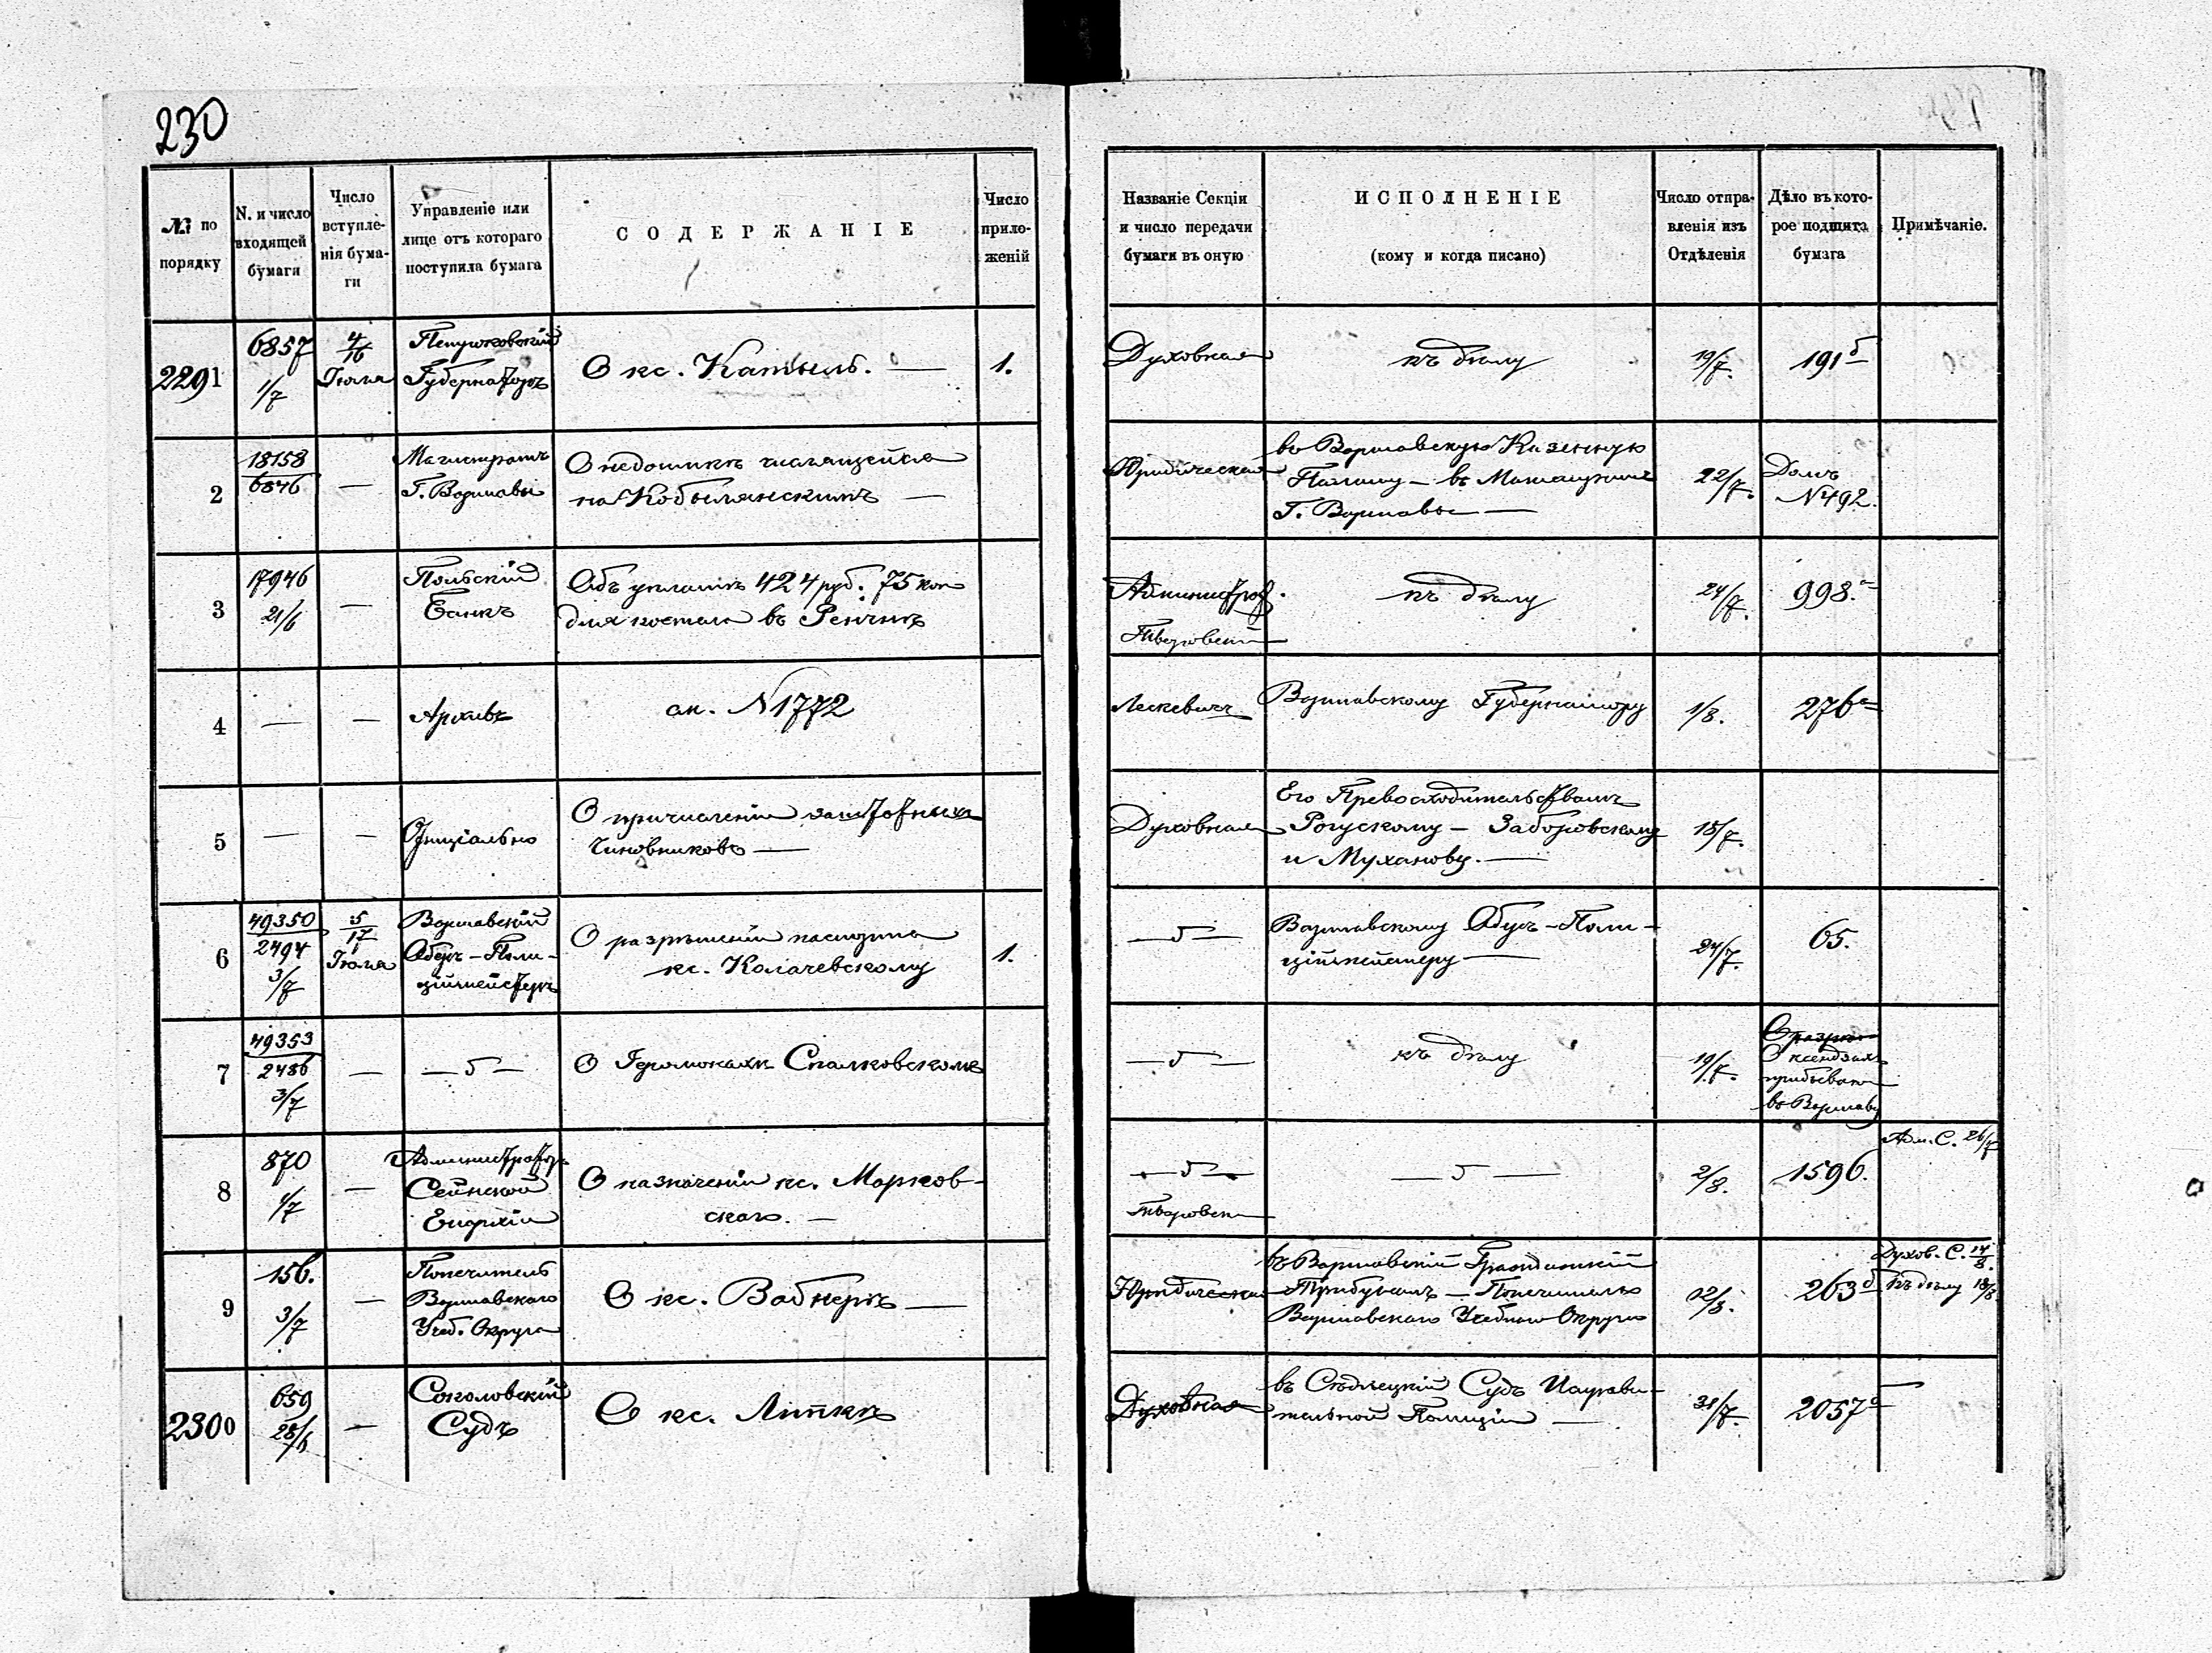 230
№ по порядку
N. и число входящей бумаги
Число вступленія бумаги
Управленіе или лице отъ котораго поступила бумага
СОДЕРЖАНІЕ
Число приложеній
Названіе Секціи и число передачи бумаги въ оную
ИСПОЛНЕНІЕ
(кому и когда писано)
Число отправленія изъ Отдѣленія
Дѣло въ которое подшита бумага
Примѣчаніе.
2291
6857
1/7
4/16
Іюля
Губернаторъ
О кс.
1.
Духовная
къ дѣлу
19/7.
191 б
2
18158
6846
—
Магистратъ
Г. Варшавы
О недоимкѣ числящейся
на Кобылянскимъ —
Юридическая
въ Варшавскую Казенную
Палату — въ Магистратъ
Г. Варшавы —
22/7.
Домъ
N 492.
3
17946
21/6
—
Польскій
Банкъ
Объ уплатѣ 424 руб. 75 коп
для костела въ
Администрат.
къ дѣлу
24/7.
998. а
4
—
—
Архивъ
ак. N 1772
Лескевичъ
Варшавскому Губернатору
1/8.
276 а
5
—
—
Официально
О причисленіи заштатныхъ
Чиновниковъ —
Духовная
Его Превосходительствамъ
Рогускому — Заборовскому
и Муханову. —
15/7.
6
49350
2494
3/7
5/17
Іюля
Варшавскій
Оберъ-Поли-
ційместеръ
О разрѣшеніи паспорта
кс. Колачевскому
1.
—5—
Варшавскому Оберъ-Поли-
ційместеру —
24/7.
65.
7
49353
2486
3/7
—
—5—
О Іеромонахѣ Спалковскомъ
—5—
къ дѣлу
19/7.
О ксендзахъ
въ Варшаву
8
870
1/7
—
Администраторъ
Сейнской
Епархіи
О назначеніи кс. Марков-
скаго. —
—5—
—5—
2/8.
1596.
Адм. С. 26/7
9
156.
3/7
—
Попечитель
Варшавскаго
Учеб. Округа
О кс. Вабнерѣ —
Юридическая
въ Варшавскій Гражданскій
Трибуналъ — Попечителю
Варшавскаго Учебнаго Округа
12/8.
263 б
Духов. С. 14/8.
Къ дѣлу 18/8.
2300
659
28/6
—
Соколовскій
Судъ
О кс. Липкѣ
Духовная
въ Сѣдлецкій Судъ Исправи-
тельной Полиціи —
31/7.
2057 а